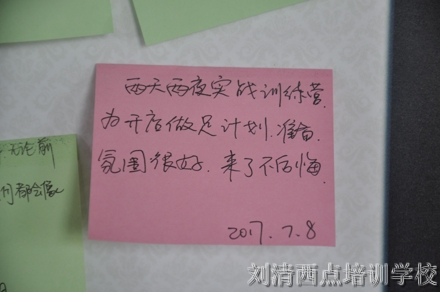 两天两夜实战训练营.
为开店做足计划.准备.
氛围很好.来了不后悔.
2017.7.8
无论前
都会像
刘清西点培训学校